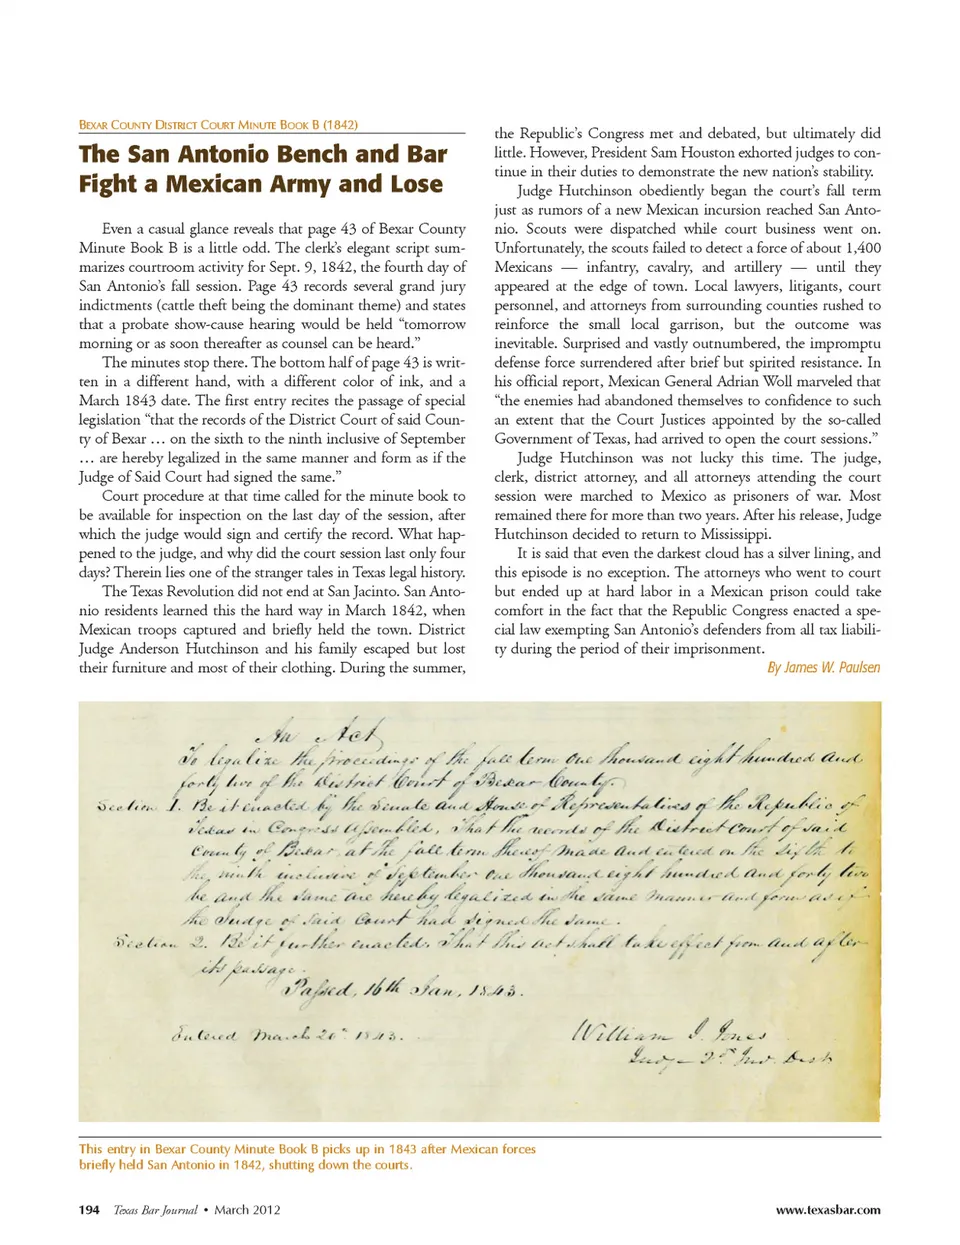 BEXAR COUNTY DISTRICT COURT MINUTE BOOK B (1842)
The San Antonio Bench and Bar
Fight a Mexican Army and Lose
Even a casual glance reveals that page 43 of Bexar County
Minute Book B is a little odd. The clerk's elegant script sum-
marizes courtroom activity for Sept. 9, 1842, the fourth day of
San Antonio's fall session. Page 43 records several grand jury
indictments (cattle theft being the dominant theme) and states
that a probate show-cause hearing would be held “tomorrow
morning or as soon thereafter as counsel can be heard.”
The minutes stop there. The bottom half of page 43 is writ-
ten in a different hand, with a different color of ink, and a
March 1843 date. The first entry recites the passage of special
legislation “that the records of the District Court of said Coun-
ty of Bexar … on the sixth to the ninth inclusive of September
… are hereby legalized in the same manner and form as if the
Judge of Said Court had signed the same.”
Court procedure at that time called for the minute book to
be available for inspection on the last day of the session, after
which the judge would sign and certify the record. What hap-
pened to the judge, and why did the court session last only four
days? Therein lies one of the stranger tales in Texas legal history.
The Texas Revolution did not end at San Jacinto. San Anto-
nio residents learned this the hard way in March 1842, when
Mexican troops captured and briefly held the town. District
Judge Anderson Hutchinson and his family escaped but lost
their furniture and most of their clothing. During the summer,
the Republic's Congress met and debated, but ultimately did
little. However, President Sam Houston exhorted judges to con-
tinue in their duties to demonstrate the new nation's stability.
Judge Hutchinson obediently began the court's fall term
just as rumors of a new Mexican incursion reached San Anto-
nio. Scouts were dispatched while court business went on.
Unfortunately, the scouts failed to detect a force of about 1,400
Mexicans — infantry, cavalry, and artillery — until they
appeared at the edge of town. Local lawyers, litigants, court
personnel, and attorneys from surrounding counties rushed to
reinforce the small local garrison, but the outcome was
inevitable. Surprised and vastly outnumbered, the impromptu
defense force surrendered after brief but spirited resistance. In
his official report, Mexican General Adrian Woll marveled that
“the enemies had abandoned themselves to confidence to such
an extent that the Court Justices appointed by the so-called
Government of Texas, had arrived to open the court sessions.”
Judge Hutchinson was not lucky this time. The judge,
clerk, district attorney, and all attorneys attending the court
session were marched to Mexico as prisoners of war. Most
remained there for more than two years. After his release, Judge
Hutchinson decided to return to Mississippi.
It is said that even the darkest cloud has a silver lining, and
this episode is no exception. The attorneys who went to court
but ended up at hard labor in a Mexican prison could take
comfort in the fact that the Republic Congress enacted a spe-
cial law exempting San Antonio's defenders from all tax liabili-
ty during the period of their imprisonment.
By James W. Paulsen
An Act
To legalize the proceedings of the fall term One thousand eight hundred and
forty two of the District Court of Bexar County.
Section 1. Be it enacted by the Senate and House of Representatives of the Republic of
Texas in Congress Assembled, That the records of the District Court of said
County of Bexar, at the fall term thereof made and entered on the Sixth to
the ninth inclusive of September One thousand eight hundred and forty two
be and the same are hereby legalized in the same manner and form as if
the Judge of Said Court had signed the same.
Section 2. Be it further enacted, That this act shall take effect from and after
its passage.
Passed, 16th Jan, 1843.
Entered March 20th 1843.
William J. Jones
Judge 2d Jud. Dist
This entry in Bexar County Minute Book B picks up in 1843 after Mexican forces
briefly held San Antonio in 1842, shutting down the courts.
194 Texas Bar Journal • March 2012
www.texasbar.com